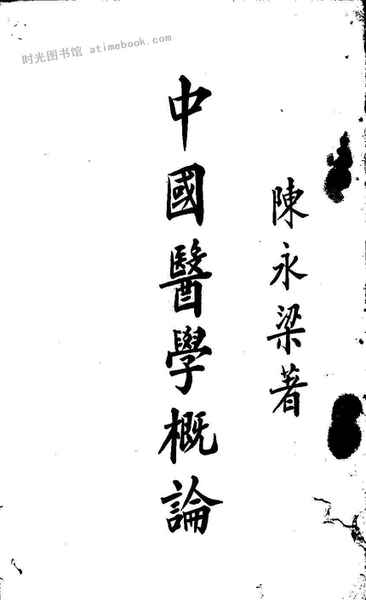 时光图书馆 atimebook.com
陳永梁著
中國醫學概論